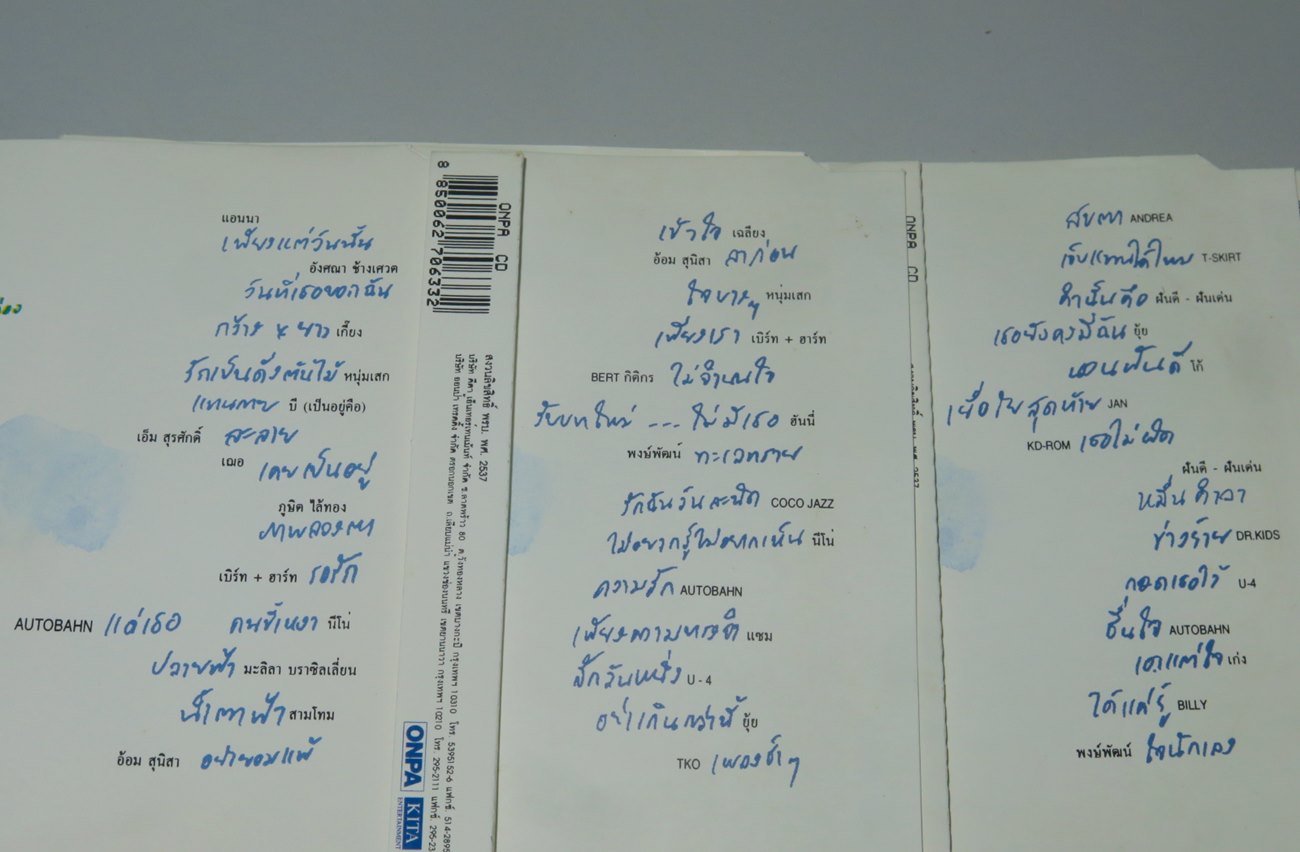 แอนนา
เพียงแต่วันนั้น
อังศณา ช้างเศวต
วันที่เธอบอกฉัน
กว้าง x ยาว เกี๊ยง
รักเป็นดั่งต้นไม้ หนุ่มเสก
แทนกาย บี (เป็นอยู่คือ)
เอ็ม สุรศักดิ์ ละลาย
เฌอ เคยเป็นอยู่
ภูษิต ไล้ทอง
ภาพลวงตา
เบิร์ท + ฮาร์ท รอรัก
AUTOBAHN แด่เธอ คนขี้เหงา นีโน่
ปลายฟ้า มะลิลา บราซิลเลี่ยน
น้ำตาฟ้า สามโทน
อ้อม สุนิสา อย่ายอมแพ้
8 850062 706332
ONPA CD
สงวนลิขสิทธิ์ พรบ. พศ. 2537
ONPA
KITA
ENTERTAINMENT
เข้าใจ เฉลียง
อ้อม สุนิสา ลาก่อน
ใจบางๆ หนุ่มเสก
เพียงเรา เบิร์ท + ฮาร์ท
BERT กิติกร ไม่จำนนใจ
รับบทใหม่ --- ไม่มีเธอ ฮันนี่
พงษ์พัฒน์ ทะเลทราย
รักฉันวันละนิด COCO JAZZ
ไม่อยากรู้ไม่อยากเห็น นีโน่
ความรัก AUTOBAHN
เพียงความทรงจำ แซม
สักวันหนึ่ง U-4
อย่าเกินกว่านี้ ยุ้ย
TKO เพลงช้าๆ
ONPA CD
สบตา ANDREA
เจ็บแทนได้ไหม T-SKIRT
คำนั้นคือ ฝันดี - ฝันเด่น
เธอยังคงมีฉัน ยุ้ย
นอนฝันดี โก้
เยื่อใยสุดท้าย JAN
KD-ROM เธอไม่ผิด
ฝันดี - ฝันเด่น
หมื่นคำลา
ช่างร้าย DR.KIDS
กอดเธอไว้ U-4
ชื่นใจ AUTOBAHN
เดาแต่ใจ เก่ง
ได้แค่รู้ BILLY
พงษ์พัฒน์ ใจนักเลง